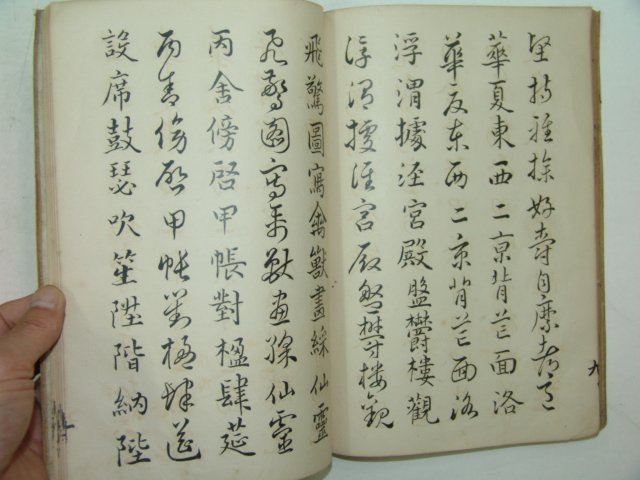 堅持雅操好爵自縻都邑
華夏東西二京背芒面洛
華夏東西二京背芒面洛
浮渭據涇宮殿盤鬱樓觀
浮渭據涇宮殿盤鬱樓觀
飛驚圖寫禽獸畫綵仙靈
飛驚圖寫禽獸畫綵仙靈
丙舍傍啓甲帳對楹肆筵
丙舍傍啓甲帳對楹肆筵
設席鼓瑟吹笙陞階納陛
九